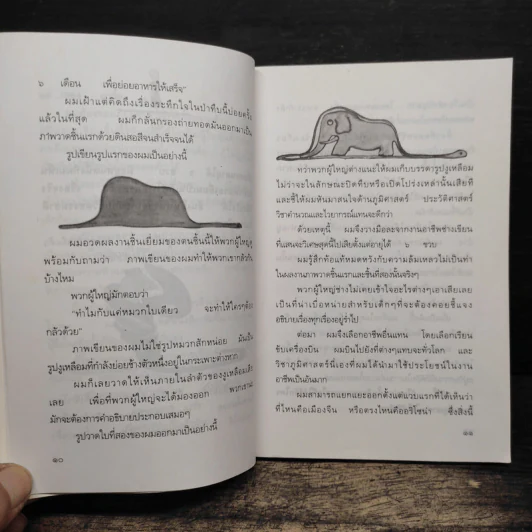 ๖ เดือน เพื่อย่อยอาหารให้เสร็จ"
ผมเฝ้าแต่คิดถึงเรื่องระทึกใจในป่าทึบนี้บ่อยครั้ง
แล้วในที่สุด ผมก็กลั่นกรองถ่ายทอดมันออกมาเป็น
ภาพวาดชิ้นแรกด้วยดินสอสีจนสำเร็จจนได้
รูปเขียนรูปแรกของผมเป็นอย่างนี้
ผมอวดผลงานชิ้นเยี่ยมของตนชิ้นนี้ให้พวกผู้ใหญ่ดู
พร้อมกับถามว่า ภาพเขียนของผมทำให้พวกเขากลัวกัน
บ้างไหม
พวกผู้ใหญ่มักตอบว่า
"ทำไมกับแค่หมวกใบเดียว จะทำให้ใครๆต้อง
กลัวด้วย"
ภาพเขียนของผมไม่ใช่รูปหมวกสักหน่อย มันเป็น
รูปงูเหลือมที่กำลังย่อยช้างตัวหนึ่งอยู่ในกระเพาะต่างหาก
ผมก็เลยวาดให้เห็นภายในลำตัวของงูเหลือมเสีย
เลย เพื่อที่พวกผู้ใหญ่จะได้มองออก พวกเขามัก
มักจะต้องการคำอธิบายประกอบเสมอๆ
รูปวาดใบที่สองของผมออกมาเป็นอย่างนี้
๑๐
ทว่าพวกผู้ใหญ่ต่างแนะให้ผมเก็บบรรดารูปงูเหลือม
ไม่ว่าจะในลักษณะปิดทึบหรือเปิดโปร่งเหล่านั้นเสียที
และชี้ให้ผมหันมาสนใจด้านภูมิศาสตร์ ประวัติศาสตร์
วิชาคำนวณและไวยากรณ์แทนจะดีกว่า
ด้วยเหตุนี้ ผมจึงวางมือละจากงานอาชีพช่างเขียน
ที่แสนจะวิเศษสุดนี้ไปเสียตั้งแต่อายุได้ ๖ ขวบ
ผมรู้สึกท้อแท้หมดหวังกับความล้มเหลวไม่เป็นท่า
ในผลงานภาพวาดชิ้นแรกและชิ้นที่สองนั้นจริงๆ
พวกผู้ใหญ่ช่างไม่เคยเข้าใจอะไรต่างๆเอาเสียเลย
เป็นที่น่าเบื่อหน่ายสำหรับเด็กๆที่จะต้องคอยชี้แจง
อธิบายเรื่องทุกเรื่องอยู่ร่ำไป
ต่อมา ผมจึงเลือกอาชีพอื่นแทน โดยเลือกเรียน
ขับเครื่องบิน ผมบินไปยังที่ต่างๆแทบจะทั่วโลก และ
วิชาภูมิศาสตร์นี่เองที่ผมได้นำมาใช้ประโยชน์ในงาน
อาชีพเป็นอันมาก
ผมสามารถแยกแยะออกตั้งแต่แวบแรกที่ได้เห็นว่า
ที่ไหนคือเมืองจีน หรือตรงไหนคืออริโซน่า ซึ่งสิ่งนี้
๑๑